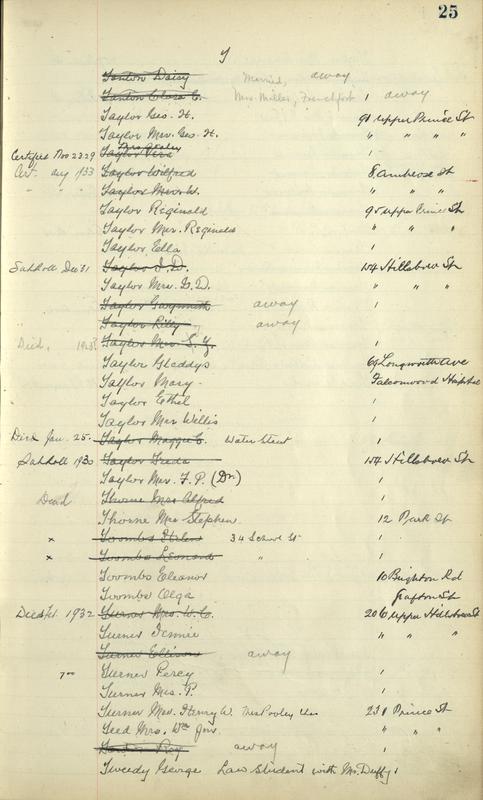 25
T
Tanton Daisy Married, away
Tanton Clara C. Mrs. Miller, Frenchfort 1 away
Taylor Geo. H. 91 Upper Prince St
Taylor Mrs. Geo. H. " " " "
Certified Nov 23 29 Taylor Vera 1
Aug 1933 Taylor Wilfred 8 Ambrose St
" " " Taylor Mrs. W. " " "
Taylor Reginald 95 Upper Prince St
Taylor Mrs. Reginald " " "
Taylor Ella 1
Dec 31 Taylor I. D. 154 Hillsboro St
Taylor Mrs. I. D. " " "
Taylor away 1
Taylor Riley away
Died, Taylor Mrs 1
Taylor Gladdys 69 Longworth Ave
Taylor Mary Falconwood Hospital
Taylor Ethel 1
Taylor Mrs Willis 1
Died Jan. 25 Taylor Maggie C. Water Street 1
1930 Taylor Freda 154 Hillsboro St
Taylor Mrs. F. P. (Dr.) 1
Dead Thorne Mrs Alfred 1
Thorne Mrs Stephen 12 Park St
x Toombs Helen 34 School St 1
x Toombs Leonard " 1
Toombs Eleanor 10 Brighton Rd
Toombs Olga Grafton St
Died Feb. 1932 Turner Mrs. W. C. 206 Upper Hillsboro St
Turner Jennie " " "
Turner Ellison away
Turner Percy 1
Turner Mrs. P. 1
Turner Mrs. Henry W. Miss Pooley 231 Prince St
Mrs. Wm " " "
Roy away 1
Tweedy George Law Student with Mr. Duffy 1